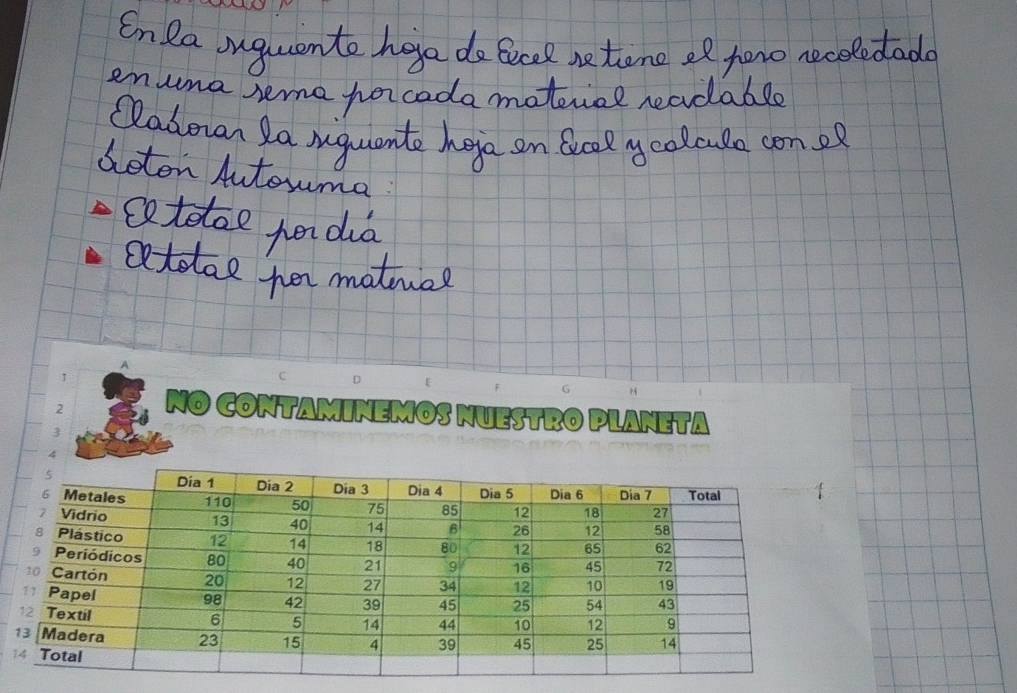 En la siguiente hoja de Excel se tiene el peso recolectado
en una sema por cada material reciclable
Elaboran la siguiente hoja en Excel y calcula con el
botón Autosuma:
El total por día
El total por material
A C D E F G H I
1
2 NO CONTAMINEMOS NUESTRO PLANETA
3
4
5 Dia 1 Dia 2 Dia 3 Dia 4 Dia 5 Dia 6 Dia 7 Total
6 Metales 110 50 75 85 12 18 27
7 Vidrio 13 40 14 6 26 12 58
8 Plástico 12 14 18 80 12 65 62
9 Periódicos 80 40 21 9 16 45 72
10 Cartón 20 12 27 34 12 10 19
11 Papel 98 42 39 45 25 54 43
12 Textil 6 5 14 44 10 12 9
13 Madera 23 15 4 39 45 25 14
14 Total